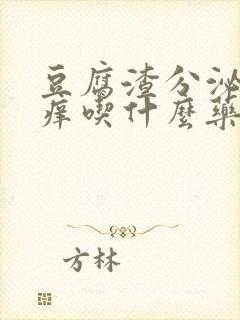 豆腐渣分泌
痒喫什麼藥
方林